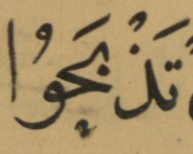 تَذْبَحُوا